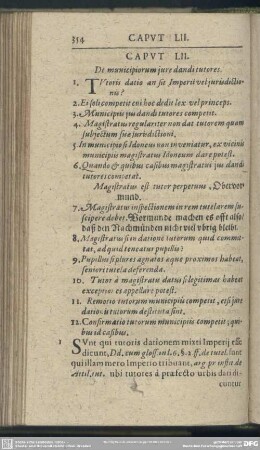 314 CAPVT LII.
CAPVT LII.
De municipiorum jure dandi tutores.
1. TVtoris datio an sit Imperii vel jurisdictio-
nis?
2. Ei soli competit cui hoc dedit lex vel princeps.
3. Municipiis jus dandi tutores competit.
4. Magistratus regulariter non dat tutorem quam
subjectum suæ jurisdictioni.
5. In municipio si Idoneus non inveniatur, ex vicinis
municipiis magistratus Idoneum dare potest.
6. Quando & quibus casibus magistratui jus dandi
tutores competat.
Magistratus est tutor perpetuus, Obervor
mund.
7. Magistratus inspectionem in rem tutelarem su-
scipere debet. Vormunde machen es offt also/
daß den Nachmünden nicht viel übrig bleibt.
8. Magistratus si in datione tutorum quid commit-
tat, ad quid teneatur pupillo?
9. Pupillus si plures agnatos æque proximos habeat,
seniori tutela deferenda.
10. Tutor à magistratu datus si legitimas habeat
exceptiones appellare potest.
11. Remotio tutorum municipiis competit, etsi jure
dationis tutorum destituta sint.
12. Confirmatio tutorum municipiis competit; qui-
busd casibus.
1 SVnt qui tutoris dationem mixti Imperij esse
dicunt, Dd. cum gloss. on l. 6. §. 2 ff. de tutel. sunt
qui illam mero Imperio tribuunt, arg. pr. inst. de
Attil. tut. ubi tutores à præfecto urbis dari di-
cuntur